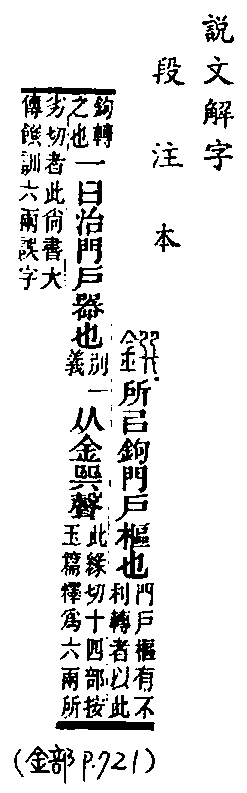 說文解字
段注本
鐉所㠯鉤門戶樞也
門戶樞有不
利轉者以此
鉤轉
之也
一曰治門戶器也
別一
義
从金巽聲
此緣切十四部按
玉篇釋爲六兩所
劣切者此尚書大
傳饌訓六兩誤字
(金部 P.721)